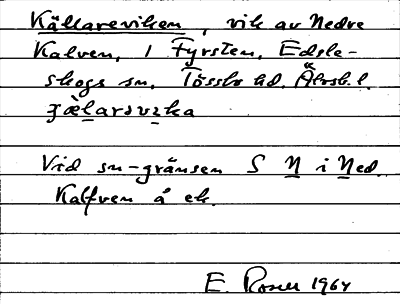 Källareviken, vik av Nedre
Kalven, i Fyrsten, Edsle-
skogs sn. Tössbo hd. Älvsb. l.
Vid sn-gränsen S N i Ned.
Kalfven å ek.
E. Rosell 1964